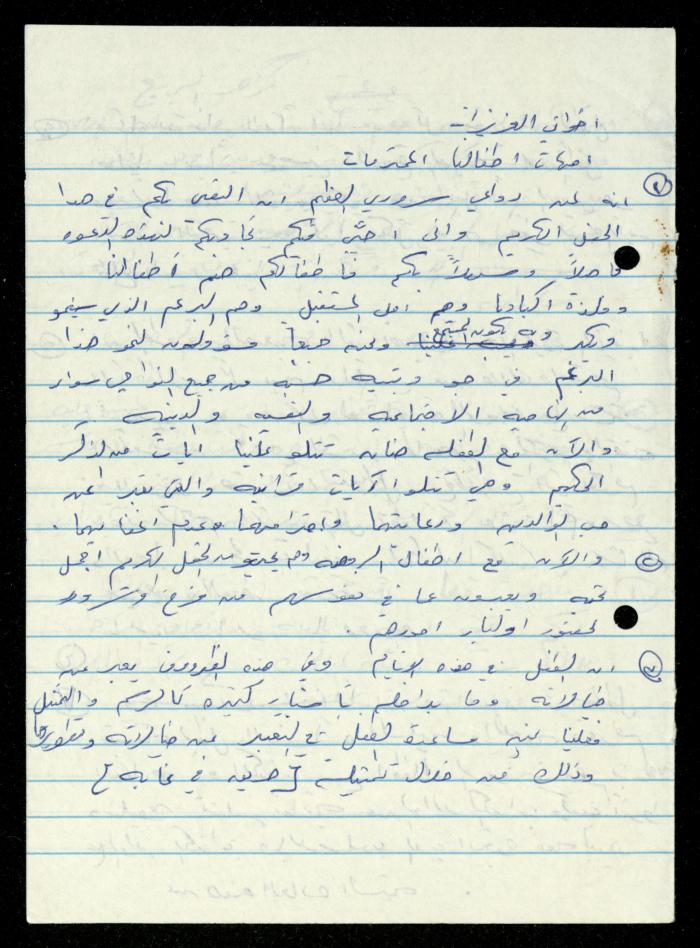 اخواتي العزيزات
امهات اطفالنا المحترمات
١ انه لمن دواعي سروري العظيم ان التقي بكم في هذا
الحفل الكريم واني احيي فيكم تجاوبكم لهذه الدعوه
فاهلاً وسهلاً بكم فاطفالكم هم أطفالنا
وفلذة اكبادنا وهم امل المستقبل وهم البرعم الذي سينمو
ويكبر وبه يكون المجتمع ونحن جميعا مسؤولون لنمو هذا
البرعم في جو وبيئه حسنه من جميع النواحي سواء
من الناحيه الاجتماعيه والنفسيه والدينيه
والآن مع الطفله حنان تتلو علينا ايات من الذكر
الحكيم وهي تتلو آيات قرآنيه والتي تعبر عن
حب الوالدين ورعايتهما واحترامهما وعدم اغضابهما.
٢ والآن مع اطفال الروضه وهم يحيون الحفل الكريم اجمل
تحيه ويعبرون عما في نفوسهم من فرح وسرور
لحضور اولياء امورهم.
٣ ان الطفل في هذه الايام وفي هذه الظروف يعبر عن
خيالاته وما بداخله باشياء كثيره كالرسم والتمثيل
فعلينا نحن مساعدة الطفل في التعبير عن خيالاته وتطورها
وذلك من خلال تمثيلية { حريق في غابه }